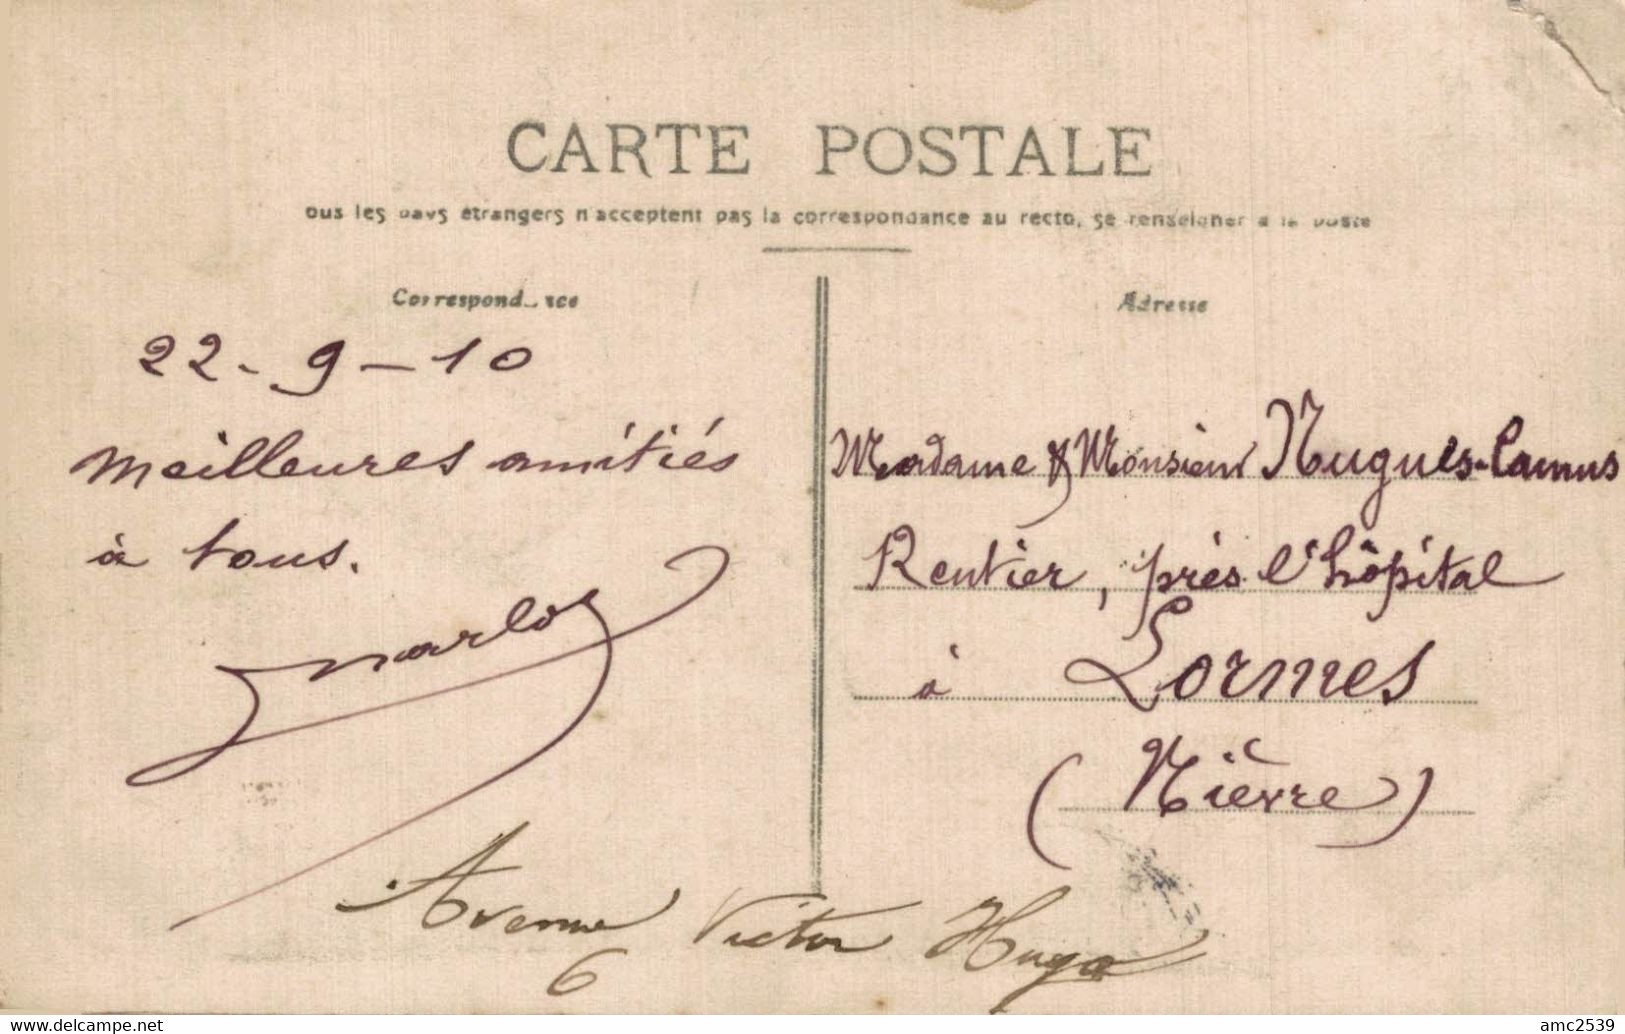 CARTE POSTALE
ous les pays étrangers n'acceptent pas la correspondance au recto, se renseigner à la poste
Correspond ce
Adresse
22 - 9 - 10
Meilleures amitiés
à tous.
Madame & Monsieur Nugues-Camus
Rentier, près l'hôpital
à Lormes
(Nièvre)
Avenue Victor Hugo
6
https://www.delcampe.net
amc2539